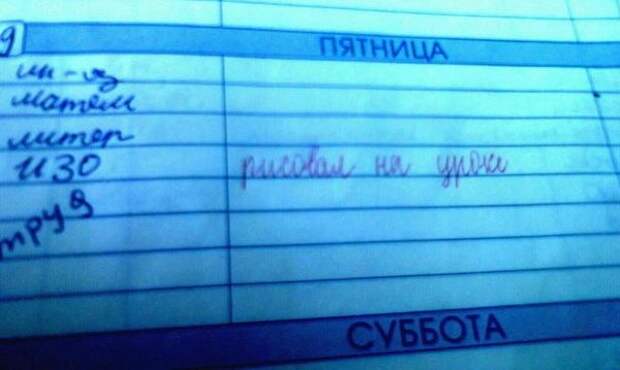 9
ПЯТНИЦА
ин-яз
матем
литер
ИЗО рисовал на уроке
труд
СУББОТА